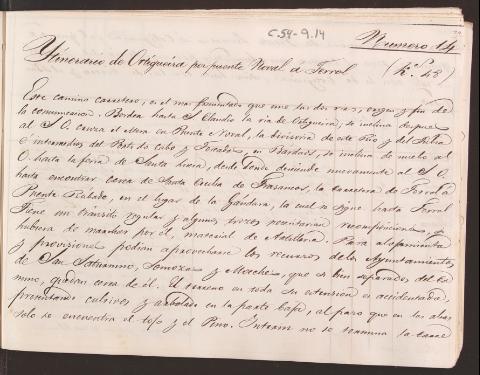 C.54-9.14
Numero 14
Ytinerario de Ortigueira por puente Noval á Ferrol
(K.s 48)
Este camino carretero, es el mas frecuentado que une las dos rias, origen y fin de
la comunicacion. Bordea hasta S. Claudio la ria de Ortigueira, se inclina despues
al S.O. cruza el Mera en Puente Noval, la divisoria de este Rio y del
é intermedios del Porto do Cabo y en se inclina de nuevo al
O. hasta la feria de Santa desde donde desciende nuevamente al S.O.
hasta encontrar cerca de Santa Cecilia de Trasancos, la carretera de Ferrol á
Puente Rabado, en el lugar de la Gándara, la cual se sigue hasta Ferrol
Tiene un transito regular y algunos trozos necesitarian recomposiciones, si
hubiera de marchar por el, material de Artilleria. Para alojamiento
y provisiones podian aprovecharse los recursos de los Ayuntamientos
de San Saturnino, Somozas y Moeche, que si bien separados del ca
mino, quedan cerca de él. El terreno en toda su estension es accidentado,
presentando cultivos y arbolado en la parte baja, al paso que en las altas
solo se encuentra el tojo y el Pino. Interin no se termina la carre